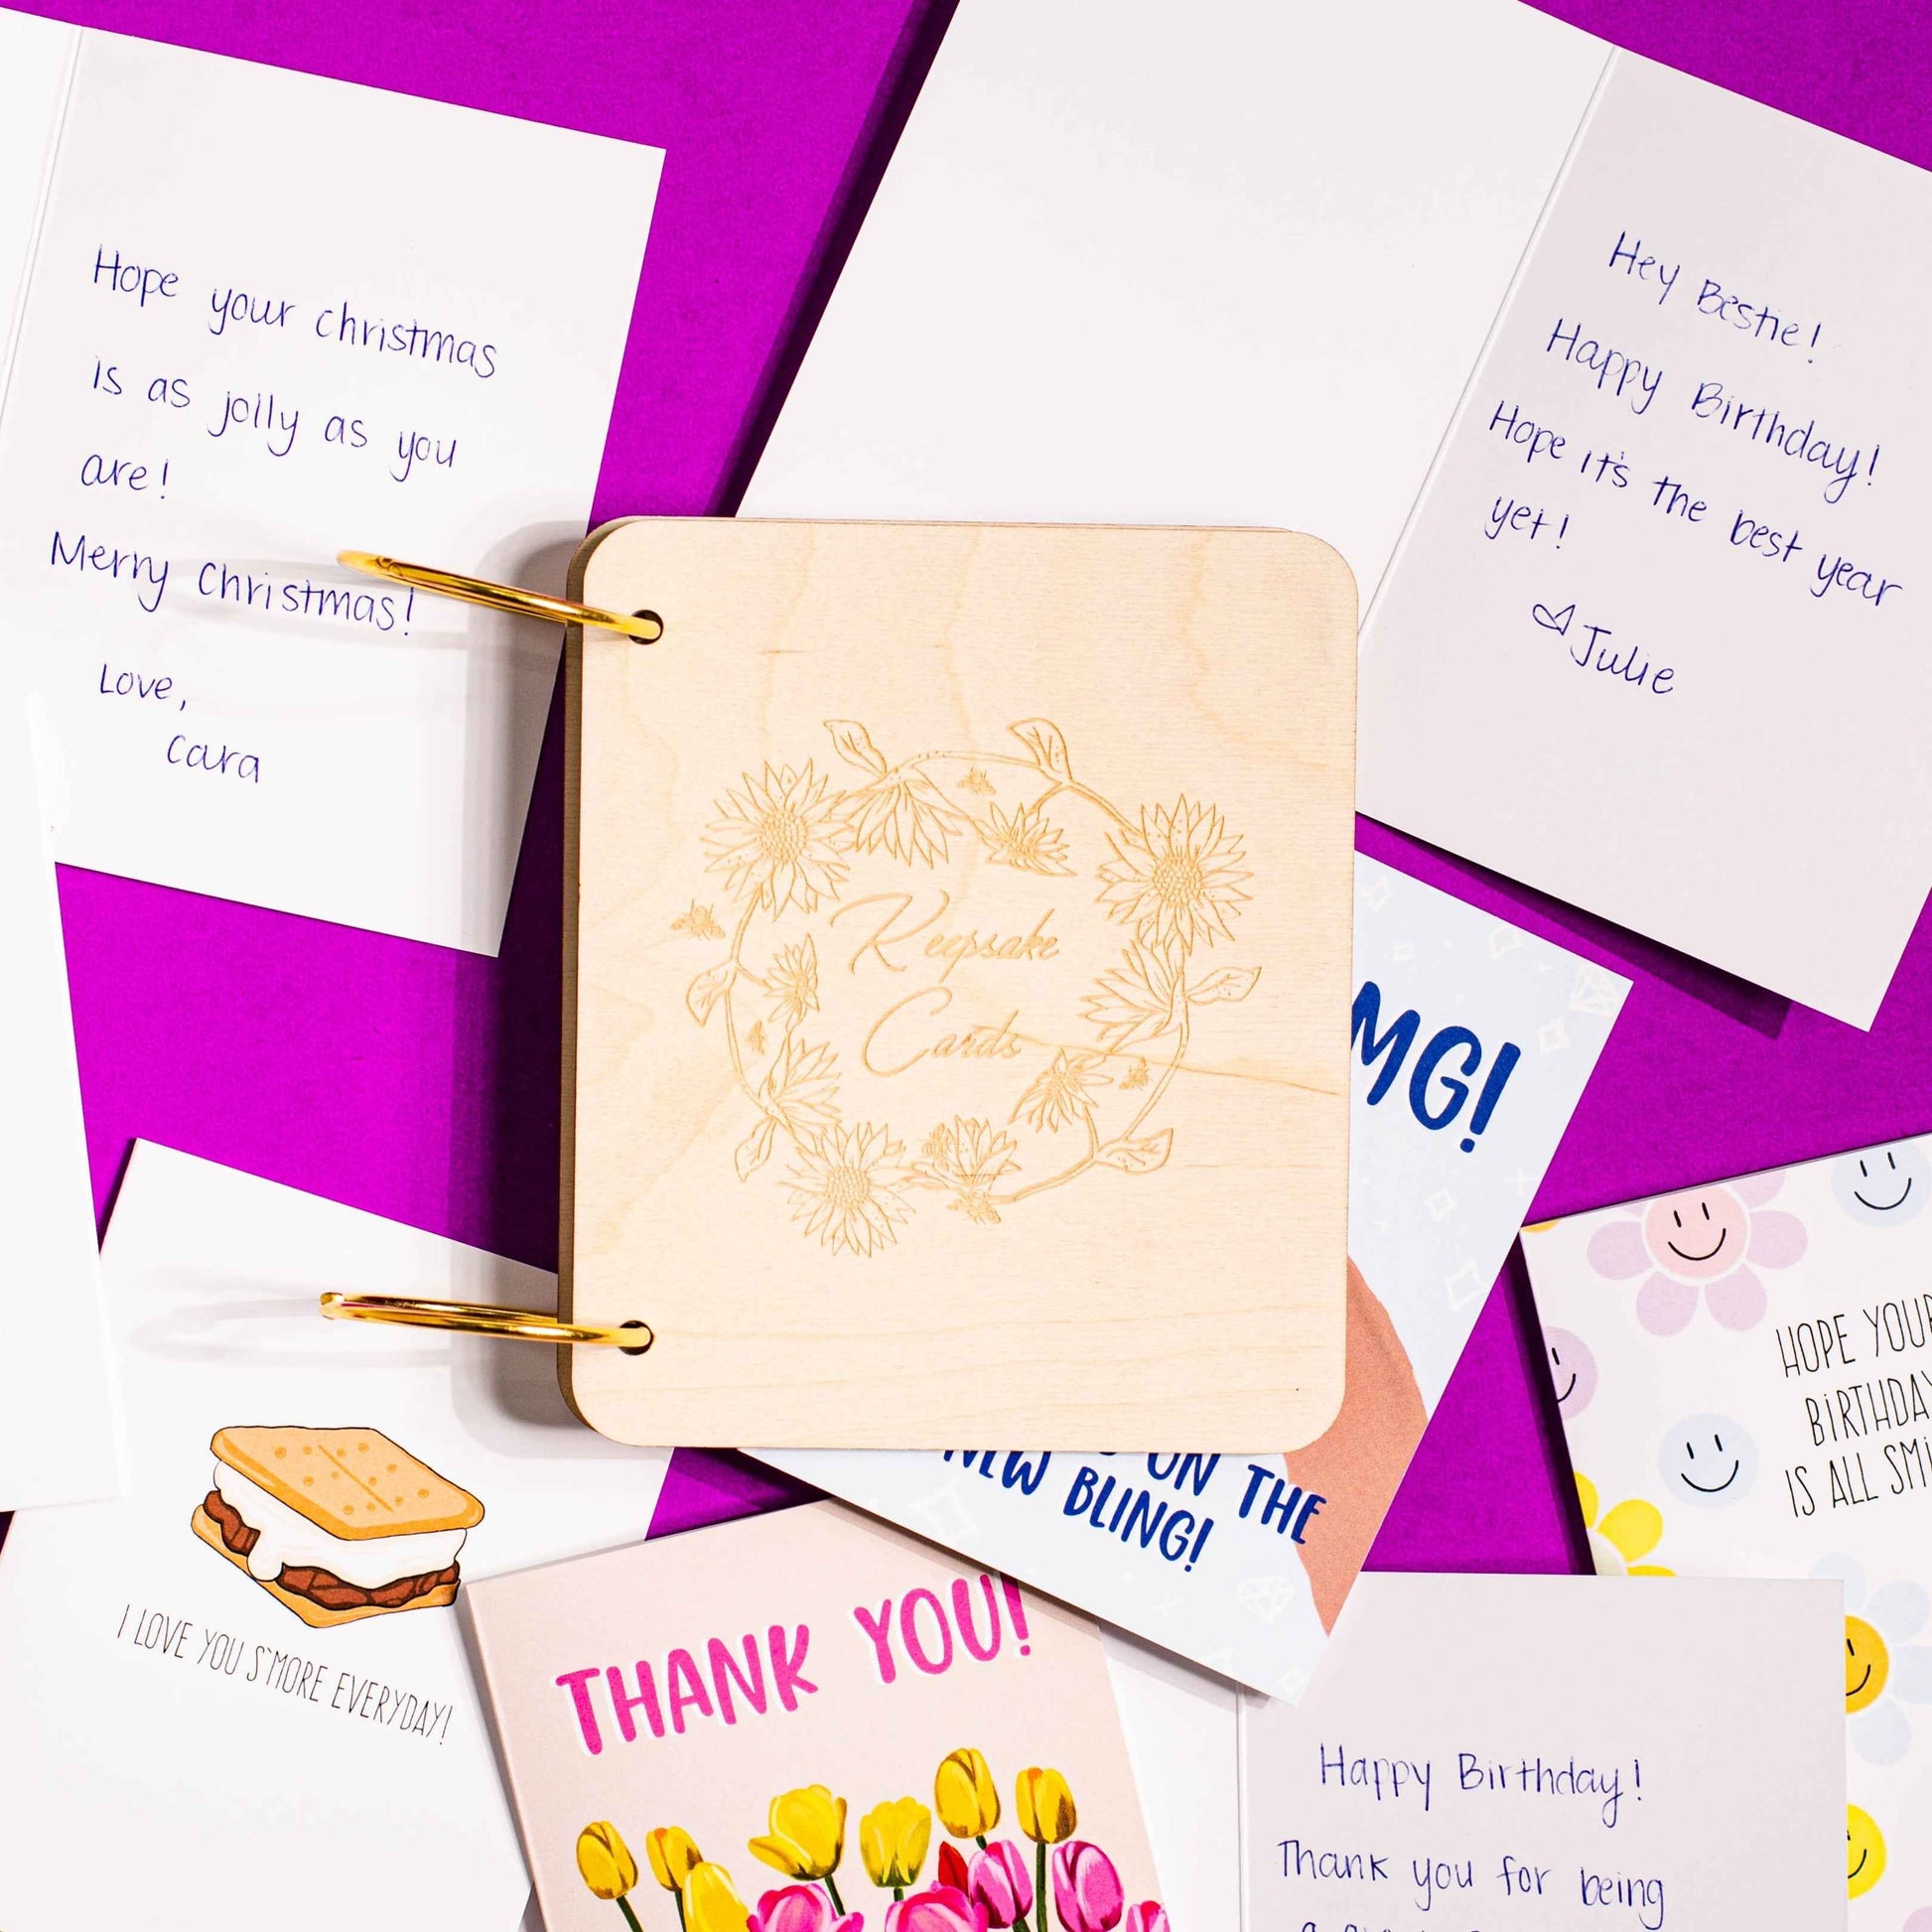 Hope your christmas
is as jolly as you
are!
Merry Christmas!
Love,
Cara
Hey Bestie!
Happy Birthday!
Hope it's the best year
yet!
Julie
Keepsake
Cards
MG!
ON THE
NEW BLING!
HOPE YOUR
BIRTHDA
IS ALL SMI
I LOVE YOU S'MORE EVERYDAY!
THANK YOU!
Happy Birthday!
Thank you for being